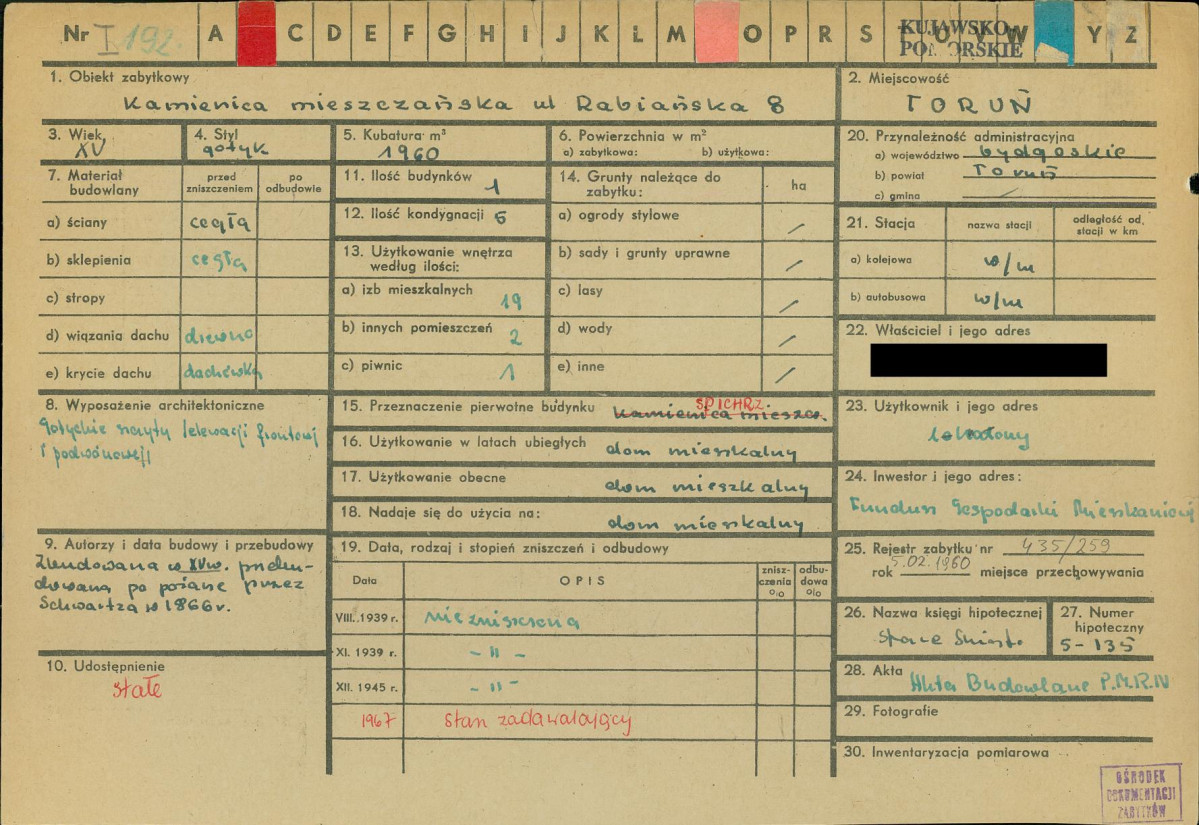 Nr I 192. A C D E F G H I J K L M O P R S T U V W Y Z
KUJAWSKO
POMORSKIE
1. Obiekt zabytkowy
Kamienica mieszczańska ul Rabiańska 8
2. Miejscowość
TORUŃ
3. Wiek
XV
4. Styl
gotyk
5. Kubatura m³
1960
6. Powierzchnia w m²
a) zabytkowa: b) użytkowa:
20. Przynależność administracyjna
a) województwo bydgoskie
b) powiat Toruń
c) gmina
7. Materiał budowlany
przed zniszczeniem
po odbudowie
a) ściany cegłą
b) sklepienia cegłą
c) stropy
d) wiązania dachu drewno
e) krycie dachu dachówką
11. Ilość budynków 1
12. Ilość kondygnacji 5
13. Użytkowanie wnętrza
według ilości:
a) izb mieszkalnych 19
b) innych pomieszczeń 2
c) piwnic 1
14. Grunty należące do
zabytku:
ha
a) ogrody stylowe /
b) sady i grunty uprawne /
c) lasy /
d) wody /
e) inne /
21. Stacja
nazwa stacji
odległość od stacji w km
a) kolejowa w/m
b) autobusowa w/m
22. Właściciel i jego adres
8. Wyposażenie architektoniczne
Gotyckie szczyty /elewacji frontowej
i podwórzowej/
15. Przeznaczenie pierwotne budynku SPICHRZ.
kamienica mieszcz.
16. Użytkowanie w latach ubiegłych dom mieszkalny
17. Użytkowanie obecne dom mieszkalny
18. Nadaje się do użycia na: dom mieszkalny
23. Użytkownik i jego adres
lokatorzy
24. Inwestor i jego adres:
Fundusz Gospodarki Mieszkaniowej
9. Autorzy i data budowy i przebudowy
Zbudowana w XV w. przebu-
dowana po pożarze przez
Schwartza w 1866 r.
10. Udostępnienie
stałe
19. Data, rodzaj i stopień zniszczeń i odbudowy
Data OPIS znisz-czenia % odbu-dowa %
VIII. 1939 r. niezniszczona
XI. 1939 r. - " -
XII. 1945 r. - " -
1967 stan zadawalający
25. Rejestr zabytku nr 435/259
rok 5.02.1960 miejsce przechowywania
26. Nazwa księgi hipotecznej
Stare Miasto
27. Numer
hipoteczny
5-135
28. Akta
Akta Budowlane P.M.R.N
29. Fotografie
30. Inwentaryzacja pomiarowa
OŚRODEK
DOKUMENTACJI
ZABYTKÓW